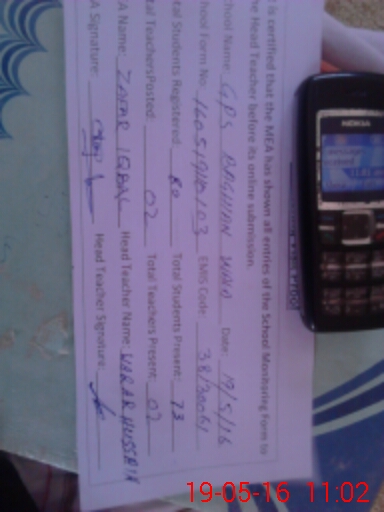 is certified that the MEA has shown all entries of the School Monitoring Form to
he Head Teacher before its online submission.
chool Name: GPS BAGHWAN WALA Date: 19/5/16
hool Form No: 16051910103 EMIS Code: 38130061
al Students Registered: 80 Total Students Present: 73
al TeachersPosted: 02 Total Teachers Present: 02
A Name: ZAFAR IQBAL Head Teacher Name: WAQAR HUSSAIN
A Signature: Head Teacher Signature:
NOKIA
19-05-16 11:02